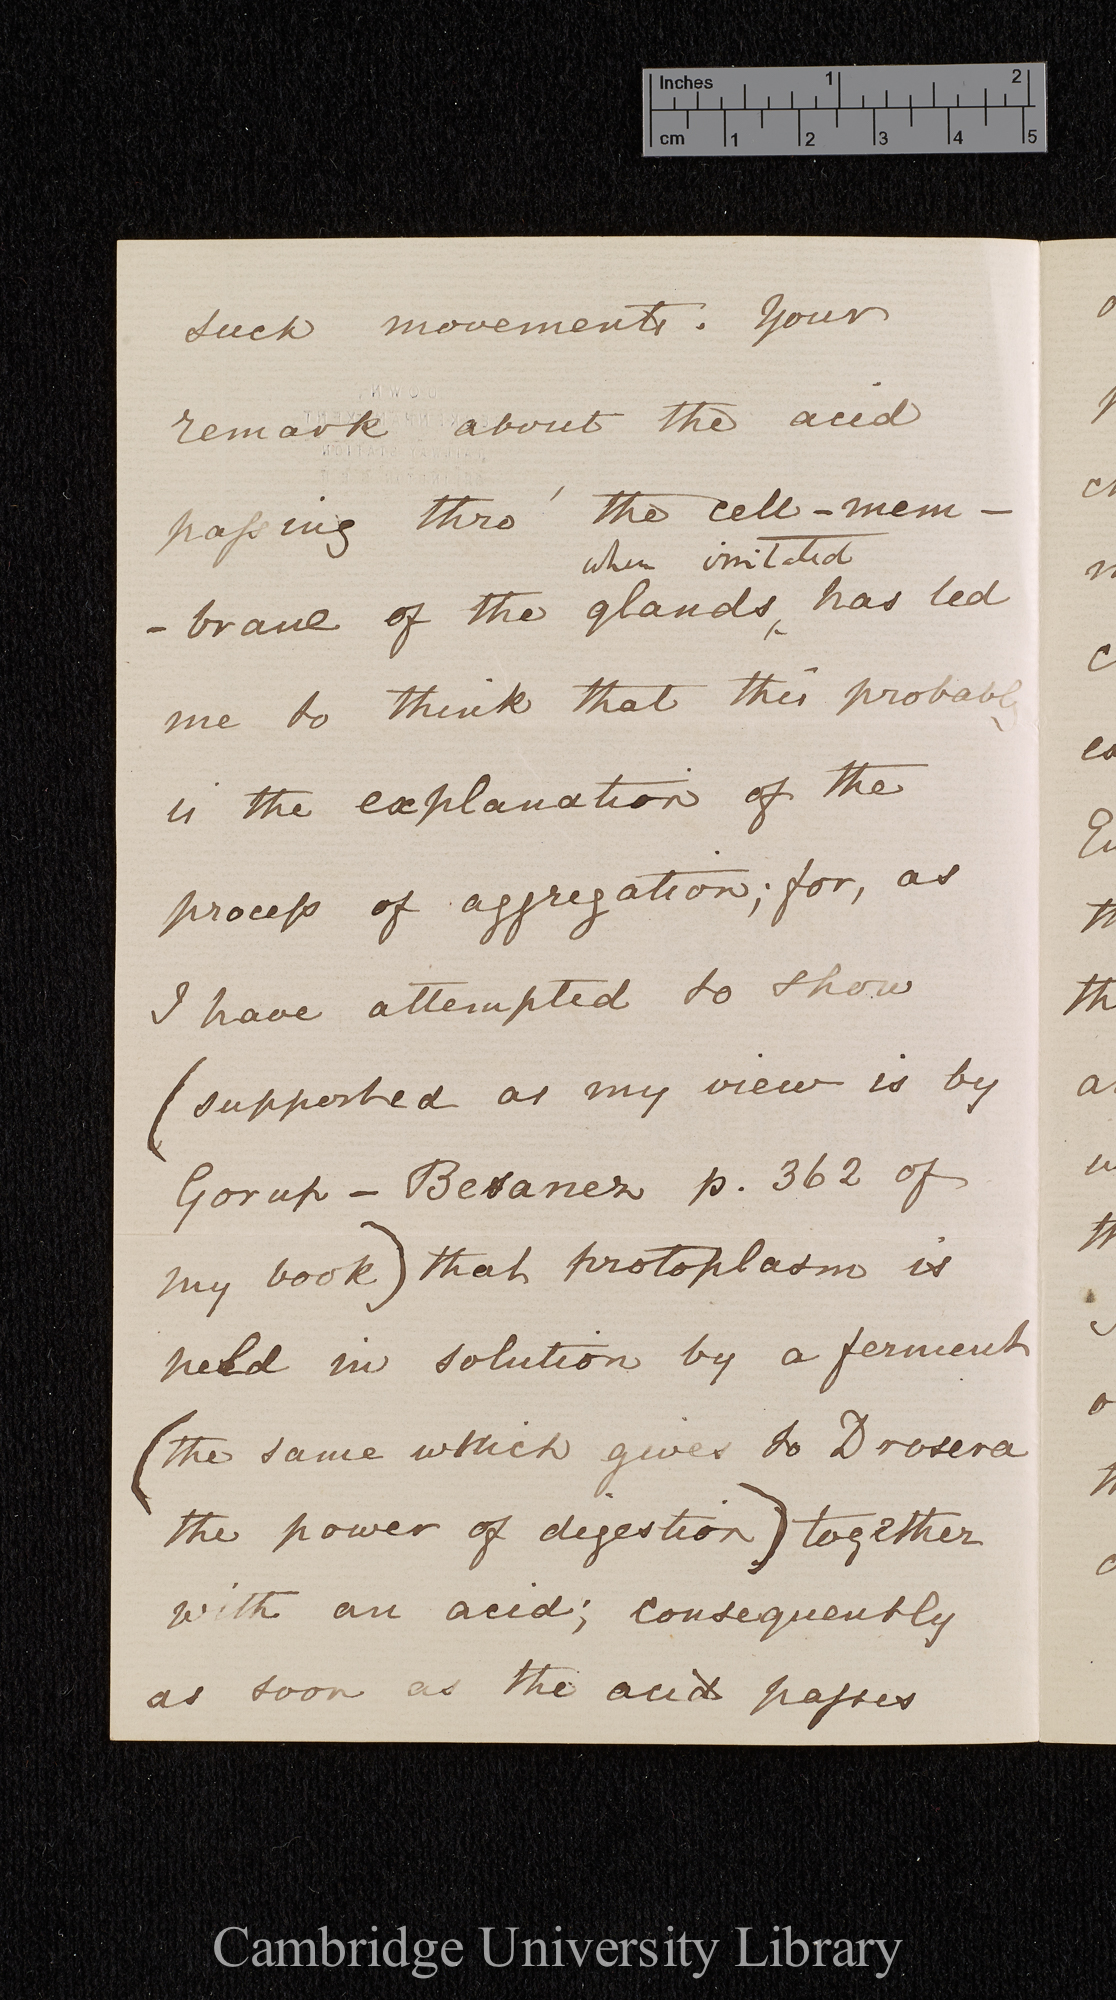 Inches 1 2
cm 1 2 3 4 5
such movements. Your
remark about the acid
passing thro' the cell-mem-
when irritated
-brane of the glands, has led
me to think that this probably
is the explanation of the
process of aggregation; for, as
I have attempted to show
(supported as my view is by
Gorup-Besanez p. 362 of
my book) that protoplasm is
held in solution by a ferment
(the same which gives to Drosera
the power of digestion) together
with an acid; consequently
as soon as the acid passes
Cambridge University Library